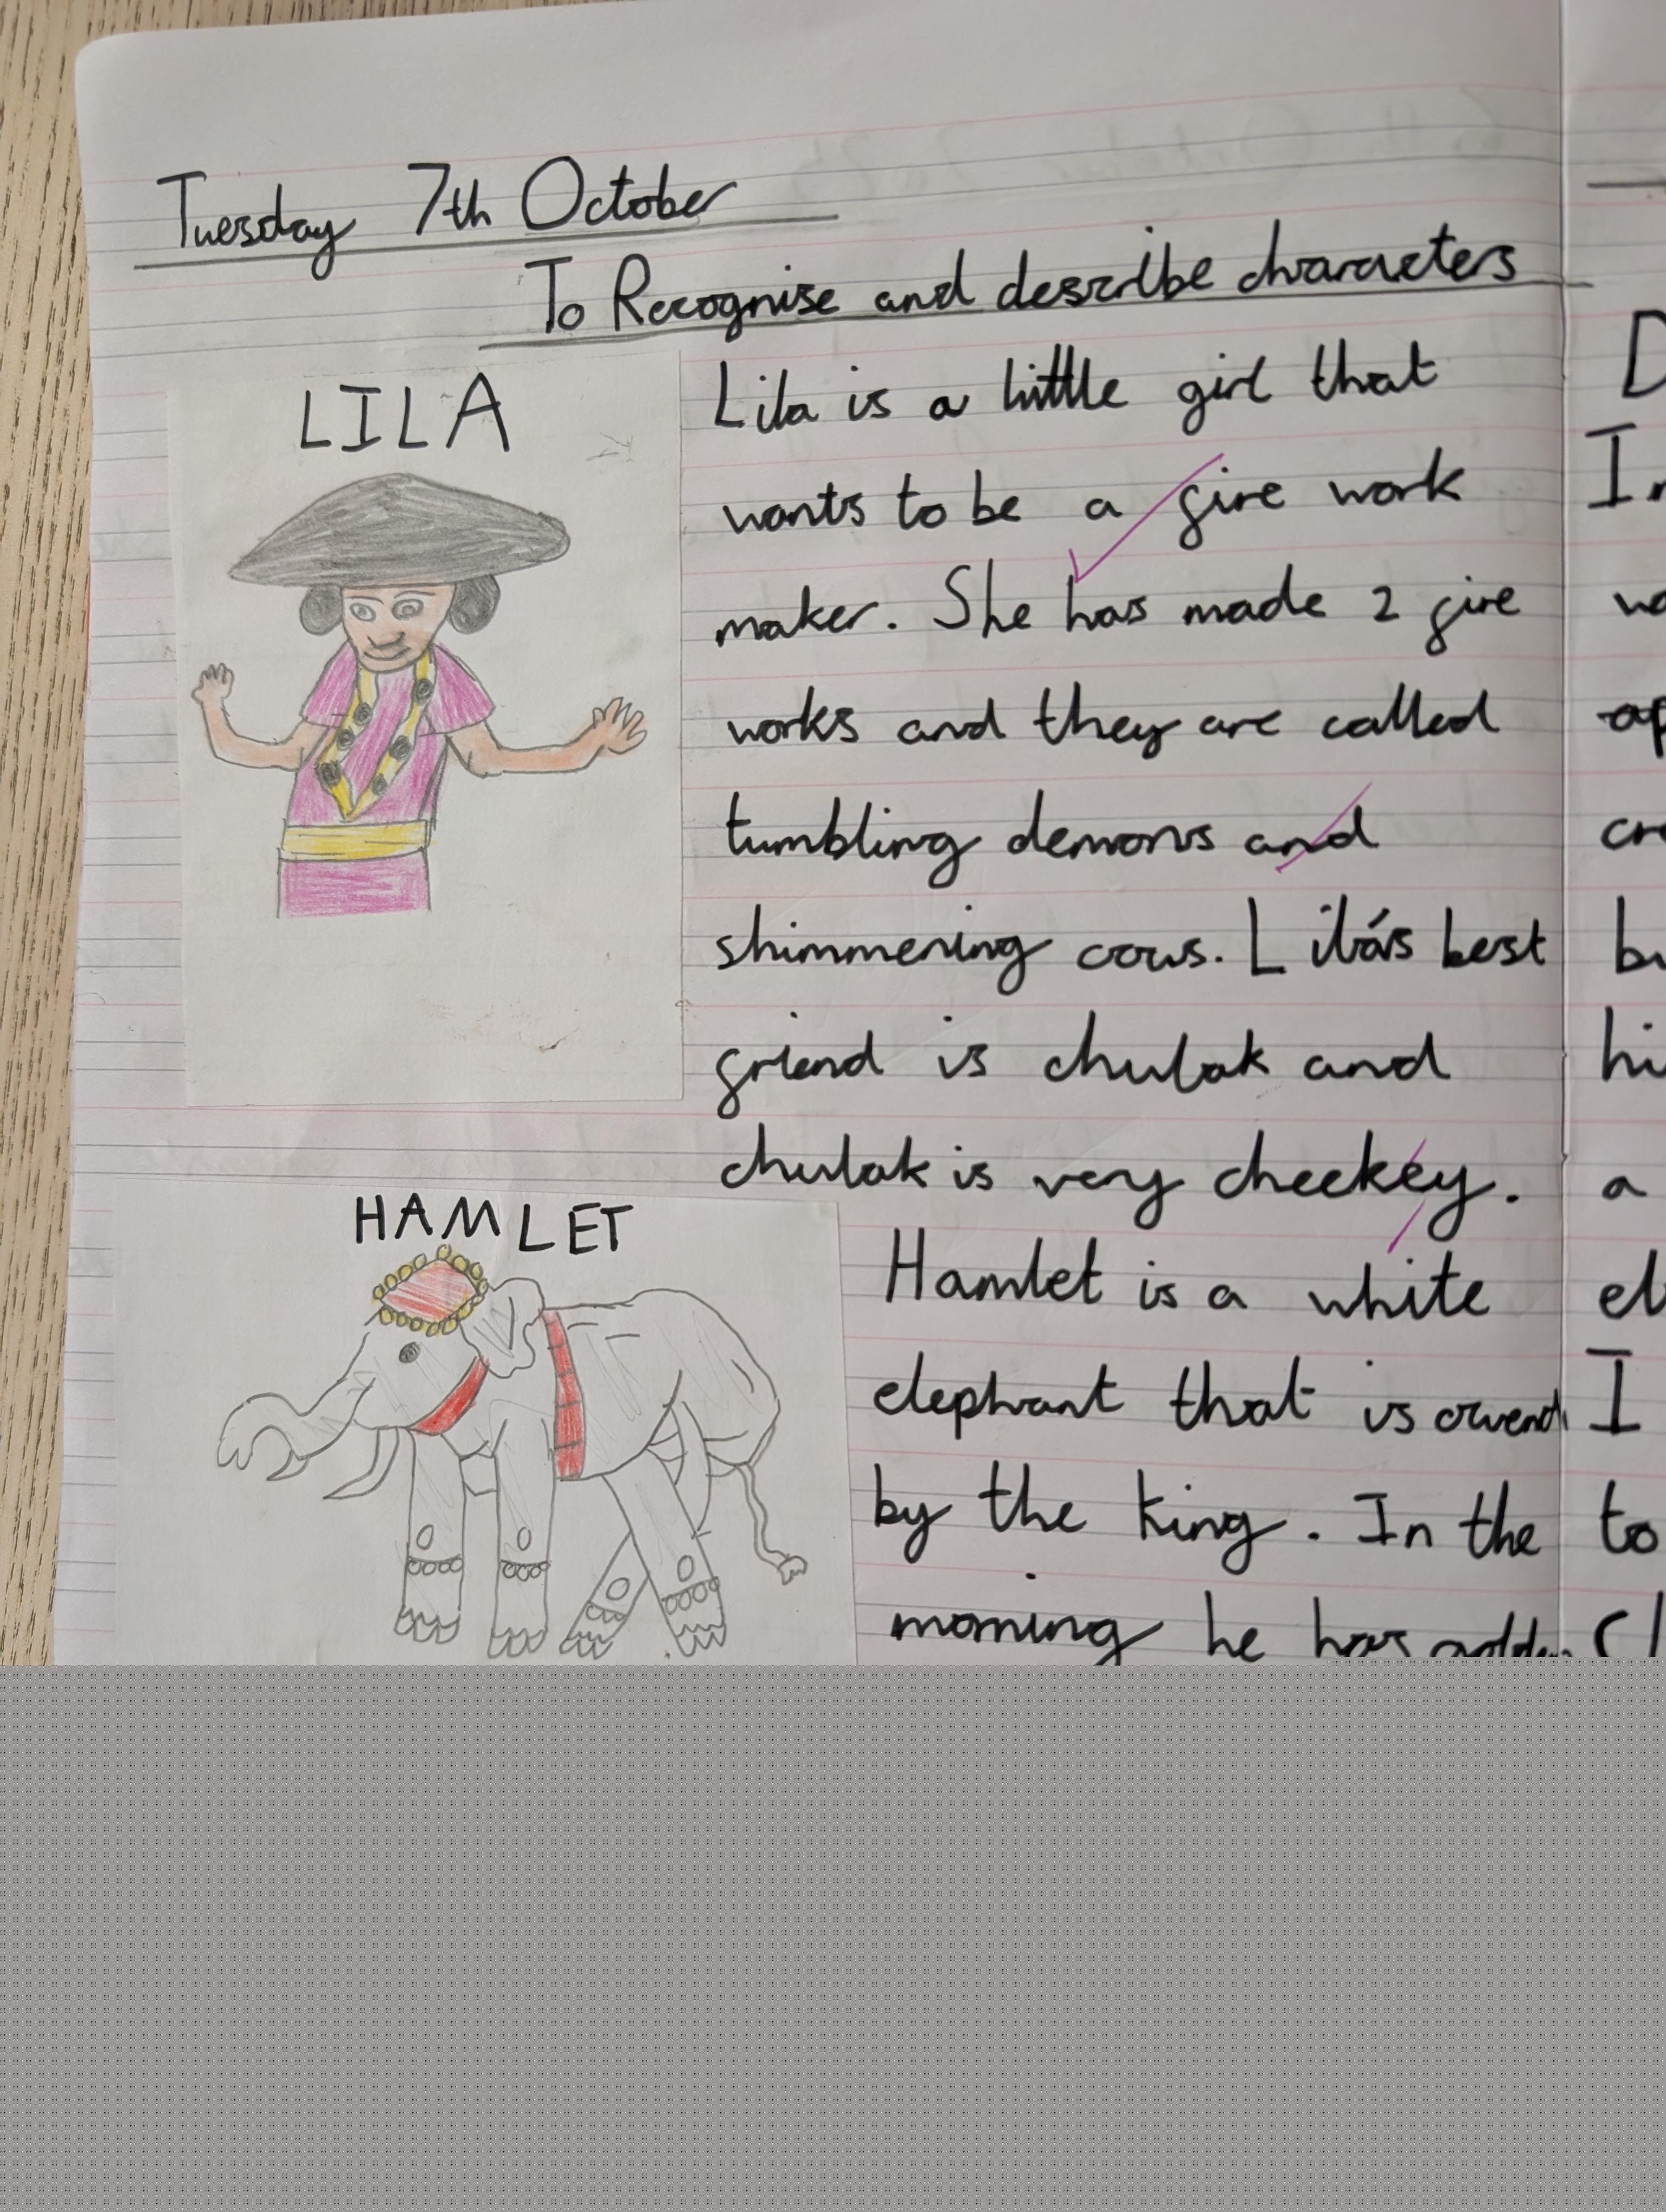 Tuesday 7th October
To Recognise and describe characters
LILA
Lila is a little girl that
wants to be a fire work
maker. She has made 2 fire
works and they are called
tumbling demons and
shimmering cows. Lila's best
friend is chulak and
chulak is very cheekey.
HAMLET
Hamlet is a white
elephant that is owend
by the king. In the
morning he has
D
In
wo
ap
cre
bu
hi
a
el
I
to